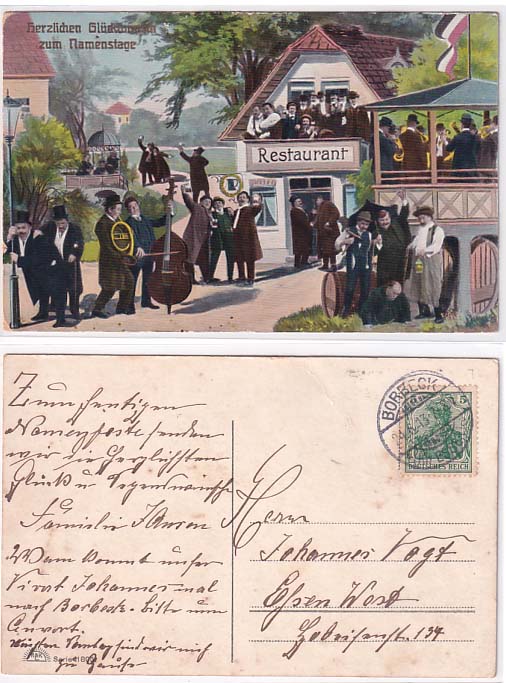 Herzlichen Glückwunsch
zum Namenstage
Restaurant
Zum heutigen
Namensfeste senden
wir die herzlichsten
Glück u. Segenswünsche
Familie Jansen
Wann kommt unser
Vivat Johannes mal
nach Borbeck. Bitte um
Antwort.
sind wir nicht
zu Hause
Serie
BORBECK
5
DEUTSCHES REICH
Herrn
Johannes Vogt
Essen West
134